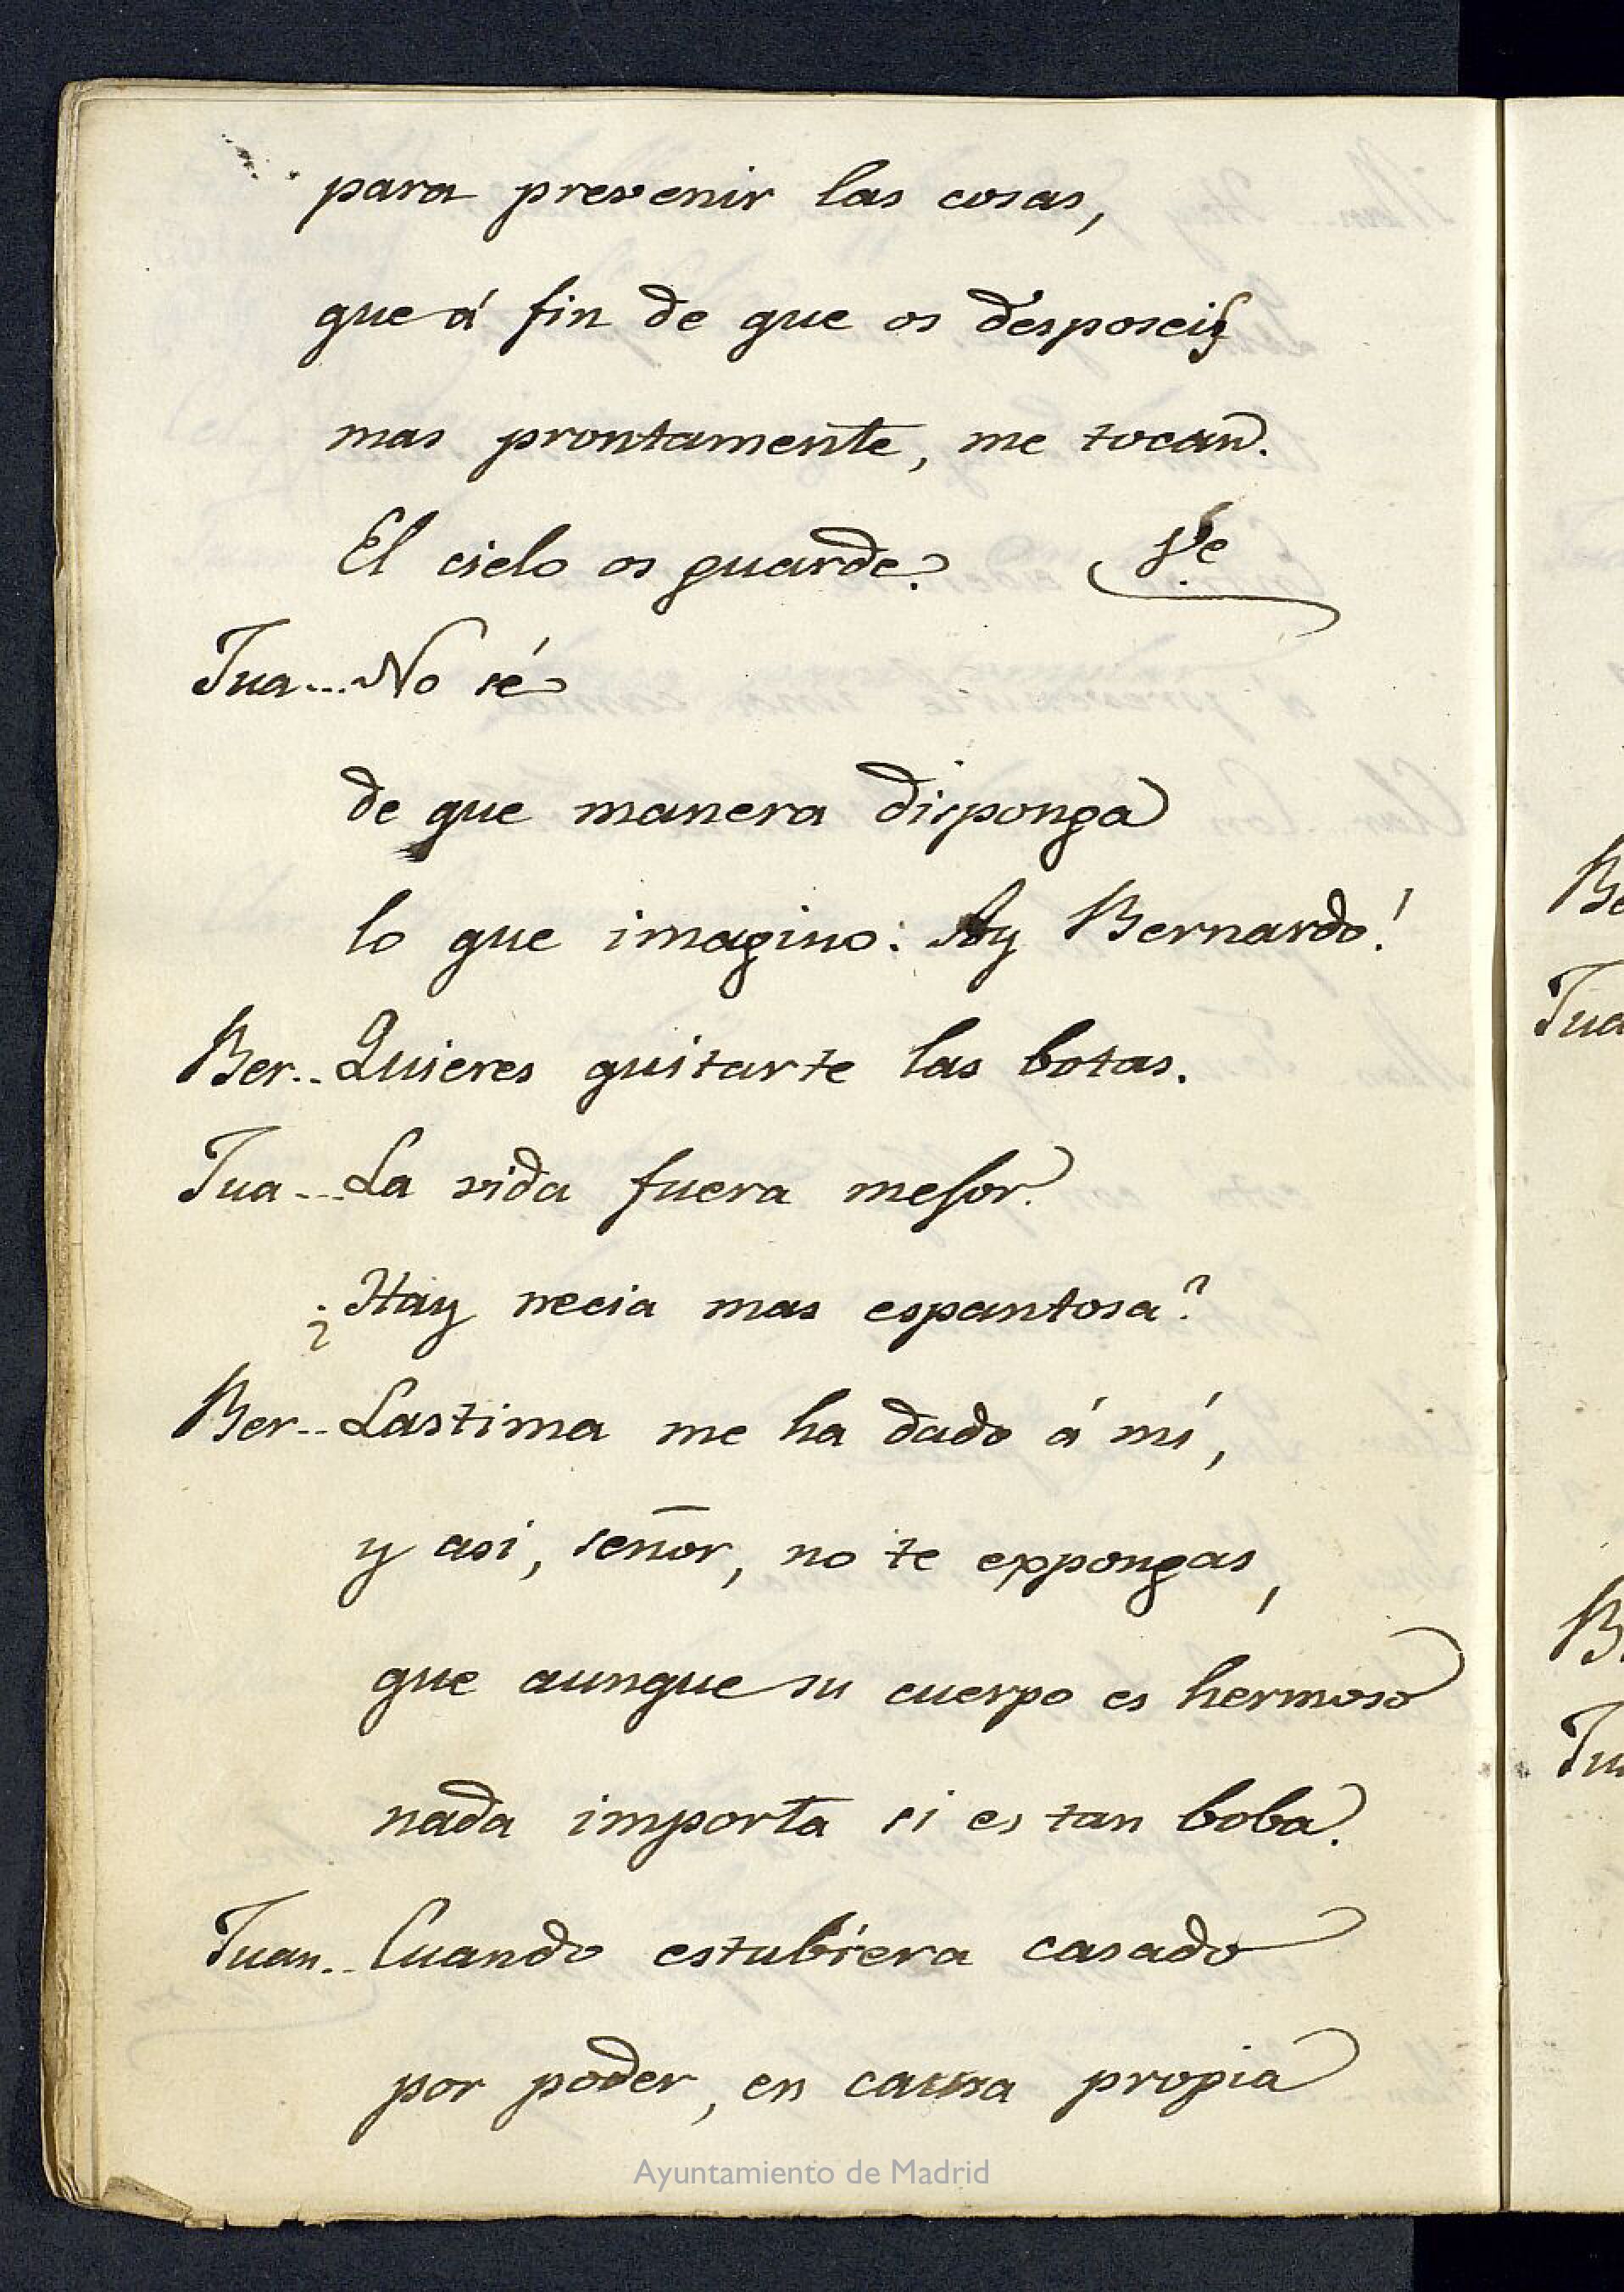 para prevenir las cosas,
que á fin de que os desposeis
mas prontamente, me tocan.
El cielo os guarde. Ve
Jua... No sé
de que manera disponga
lo que imagino: Ay Bernardo!
Ber.. Quieres quitarte las botas.
Jua... La vida fuera mejor.
¿Hay necia mas espantosa?
Ber.. Lastima me ha dado á mí,
y asi, señor, no te expongas,
que aunque su cuerpo es hermoso
nada importa si es tan boba.
Juan.. Cuando estubiera casado
por poder, en causa propia
Ayuntamiento de Madrid
Jua